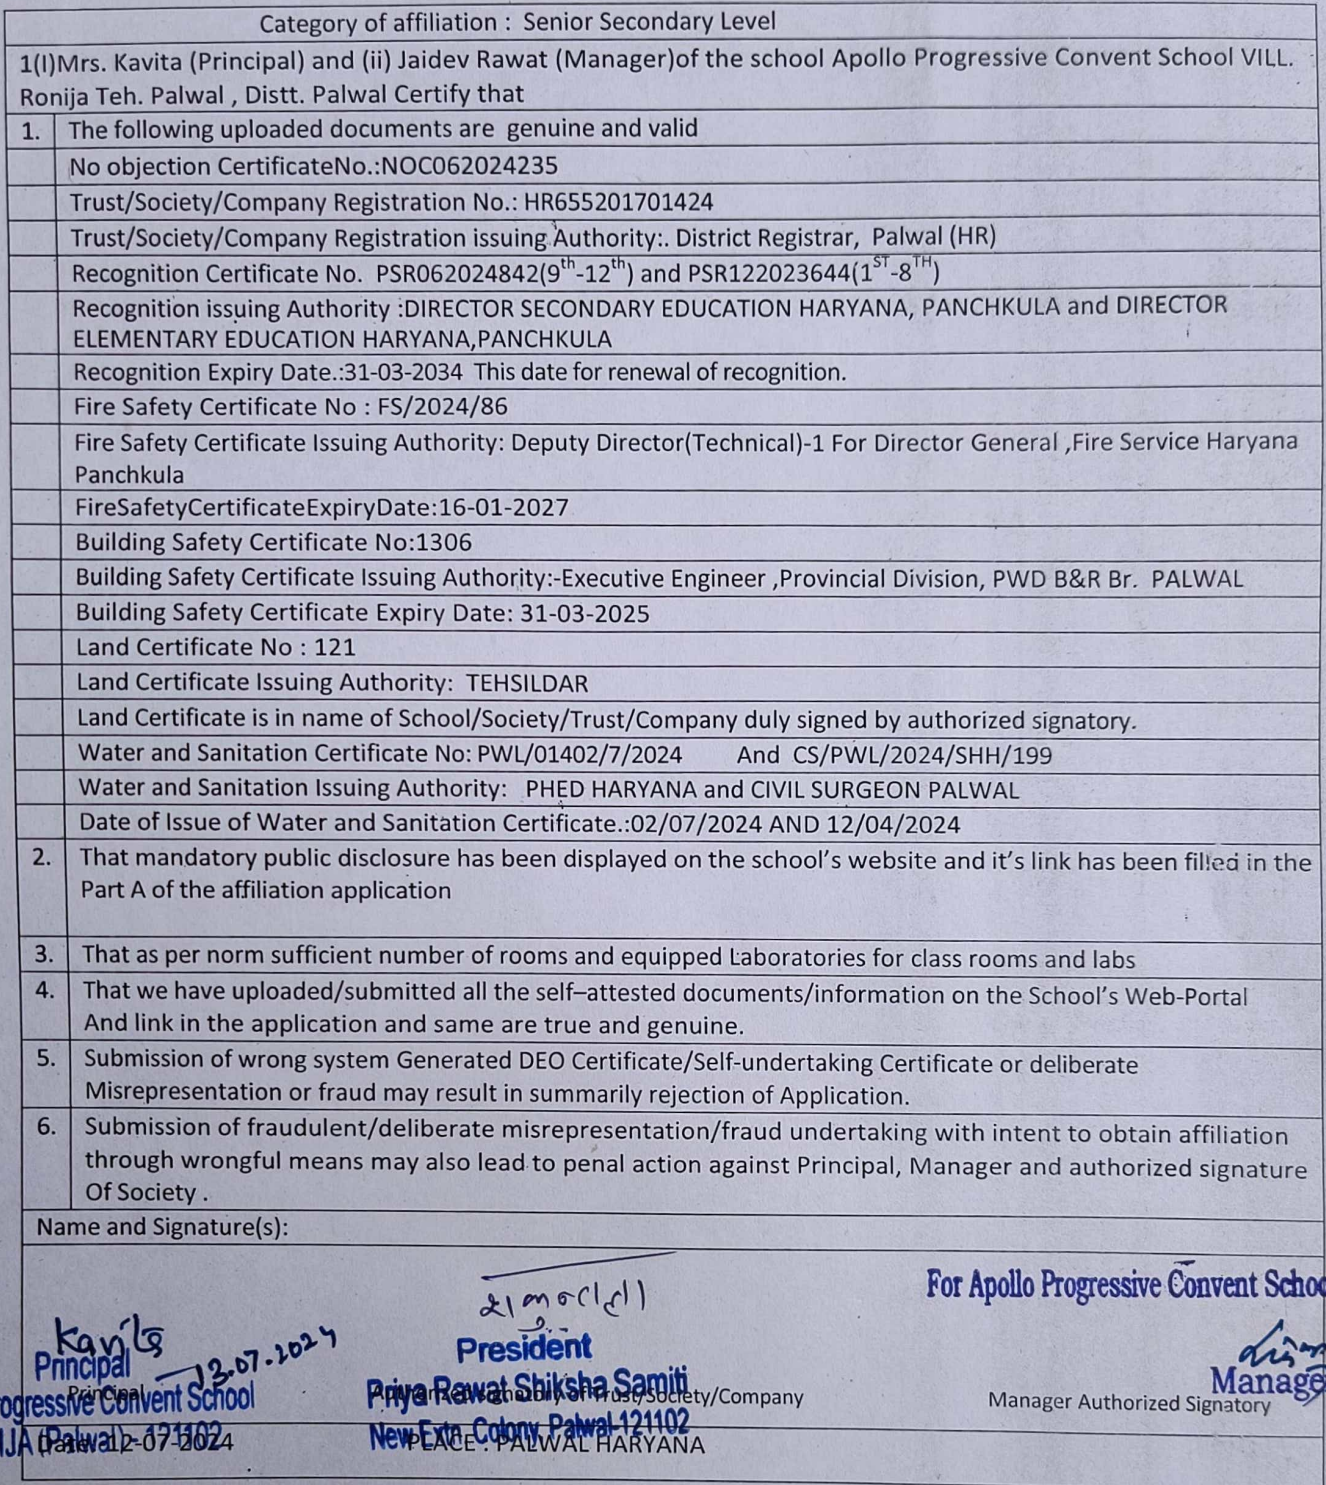 Category of affiliation : Senior Secondary Level
1(I)Mrs. Kavita (Principal) and (ii) Jaidev Rawat (Manager)of the school Apollo Progressive Convent School VILL.
Ronija Teh. Palwal , Distt. Palwal Certify that
1. The following uploaded documents are genuine and valid
No objection CertificateNo.:NOC062024235
Trust/Society/Company Registration No.: HR655201701424
Trust/Society/Company Registration issuing Authority:. District Registrar, Palwal (HR)
Recognition Certificate No. PSR062024842(9th-12th) and PSR122023644(1ST-8TH)
Recognition issuing Authority :DIRECTOR SECONDARY EDUCATION HARYANA, PANCHKULA and DIRECTOR
ELEMENTARY EDUCATION HARYANA,PANCHKULA
Recognition Expiry Date.:31-03-2034 This date for renewal of recognition.
Fire Safety Certificate No : FS/2024/86
Fire Safety Certificate Issuing Authority: Deputy Director(Technical)-1 For Director General ,Fire Service Haryana
Panchkula
FireSafetyCertificateExpiryDate:16-01-2027
Building Safety Certificate No:1306
Building Safety Certificate Issuing Authority:-Executive Engineer ,Provincial Division, PWD B&R Br. PALWAL
Building Safety Certificate Expiry Date: 31-03-2025
Land Certificate No : 121
Land Certificate Issuing Authority: TEHSILDAR
Land Certificate is in name of School/Society/Trust/Company duly signed by authorized signatory.
Water and Sanitation Certificate No: PWL/01402/7/2024 And CS/PWL/2024/SHH/199
Water and Sanitation Issuing Authority: PHED HARYANA and CIVIL SURGEON PALWAL
Date of Issue of Water and Sanitation Certificate.:02/07/2024 AND 12/04/2024
2. That mandatory public disclosure has been displayed on the school's website and it's link has been filled in the
Part A of the affiliation application
3. That as per norm sufficient number of rooms and equipped Laboratories for class rooms and labs
4. That we have uploaded/submitted all the self–attested documents/information on the School's Web-Portal
And link in the application and same are true and genuine.
5. Submission of wrong system Generated DEO Certificate/Self-undertaking Certificate or deliberate
Misrepresentation or fraud may result in summarily rejection of Application.
6. Submission of fraudulent/deliberate misrepresentation/fraud undertaking with intent to obtain affiliation
through wrongful means may also lead to penal action against Principal, Manager and authorized signature
Of Society .
Name and Signature(s):
For Apollo Progressive Convent Schoo
Kavita
13.07.2024
Principal
President
Manage
Principal
ogressive Convent School
Priya Rawat Shiksha Samiti
Authorized signatory of Trust/Society/Company
Manager Authorized Signatory
IJA (Palwal)-121102
Date: 12-07-2024
New Extn. Colony, Palwal-121102
PLACE : PALWAL HARYANA